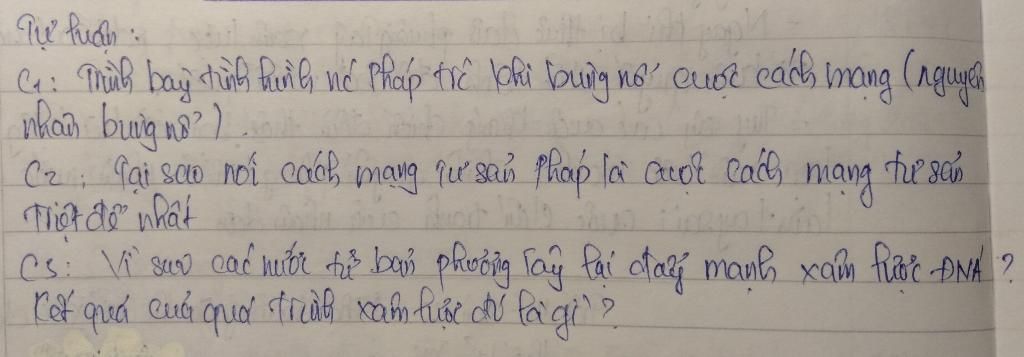 Tự luận :
C1 : Trình bày tình hình nc Pháp trc khi bùng nổ cuộc cách mạng (nguyên
nhân bùng nổ ) .
C2 : Tại sao nói cách mạng tư sản Pháp là cuộc cách mạng tư sản
Triệt để nhất
C3 : Vì sao các nước tư bản phương Tây lại đẩy mạnh xâm lược ĐNA ?
Kết quả của quá trình xâm lược đó là gì ?